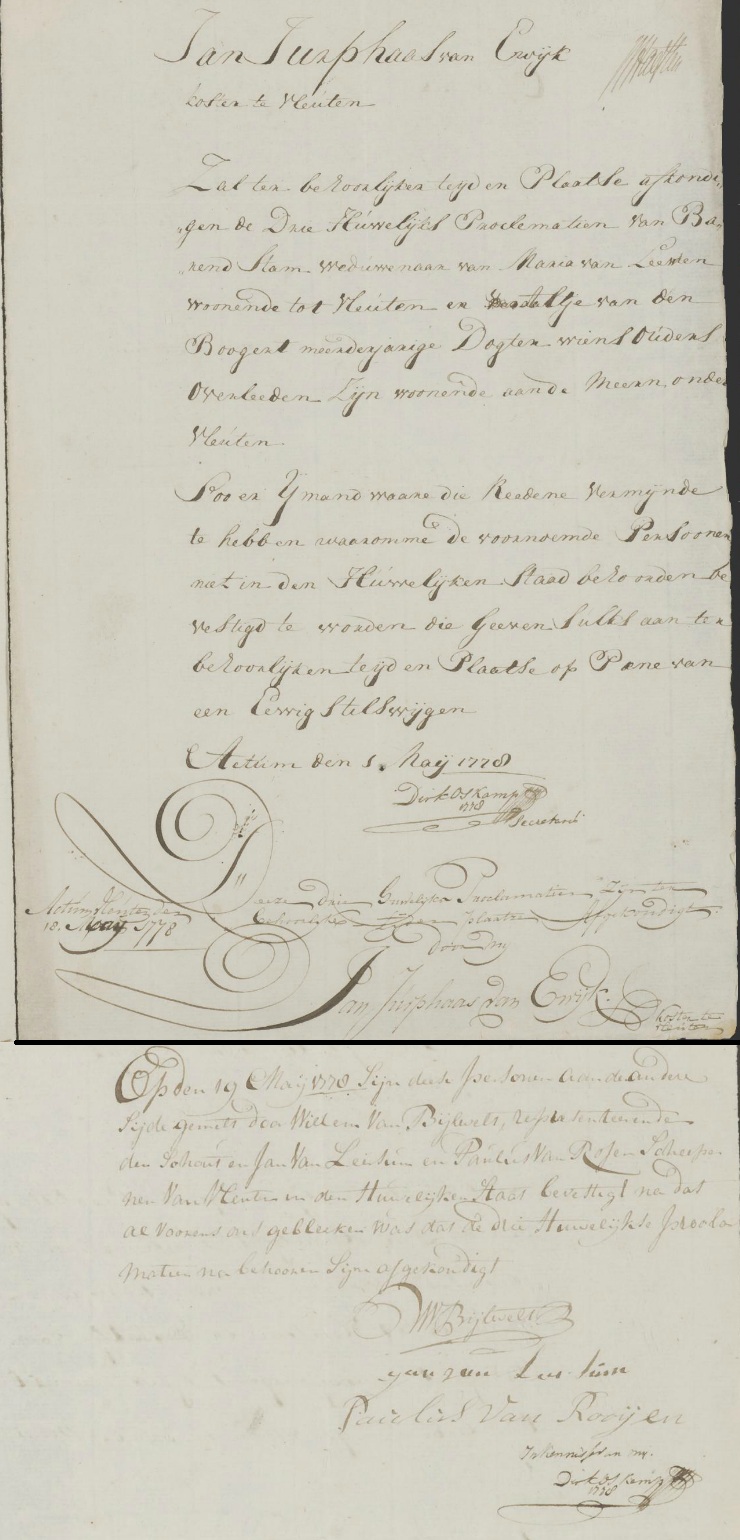 Jan Jurphaas van Ewijk
koster te Vleuten
Zal ter behoorlijker teijd en Plaatse afkondi,,
,,gen de Drie Húwelijks Proclamatien van Ba,,
,,rend Stam weduwenaar van Maria van Leewen
woonende tot Vleúten en van den
Boogert meerderjarige Dogter wiens Oúders
Overleeden Zijn woonende aan de Meern onder
Vleúten
Soo er Ijmand waare die Reedene vermijnde
te hebben waaromme de voornoemde Persoonen
niet in den Húwelijken Staad behoorden be
vestigd te worden die Geeven Sulks aan ter
behoorlijker teijd en Plaatse op Pæne van
een Eewig Stelswijgen
Actúm den 1. Maij 1778
Dirk Oskamp
1778
Secretaris
Deeze Drie Húwelijkse Proclamatien Zijn ter
behoorlijker tijd en plaatse Afgekondigt
door Mij
Actúm Vleuten den
18. May 1778
Jan Jurphaas van Ewijk.
koster te
Vleúten
Op den 19 Maij 1778 Sijn dese Personen aan de andere
Sijde gemelt door Willem Van Bijlevelt, Representeerende
den Schout en Jan Van Leusum en Paulus Van Rosen Scheepe
nen Van Vleuten in den Huwelijken Staat bevestigt na dat
al voorens ons gebleeken was dat de drie Huwelijkse Procla
matien na behooren Sijn afgekondigt
W V Bijlevelt
jan van Leusum
Paulus Van Rooijen
In kennisse van mij.
Dirk Oskamp
1778